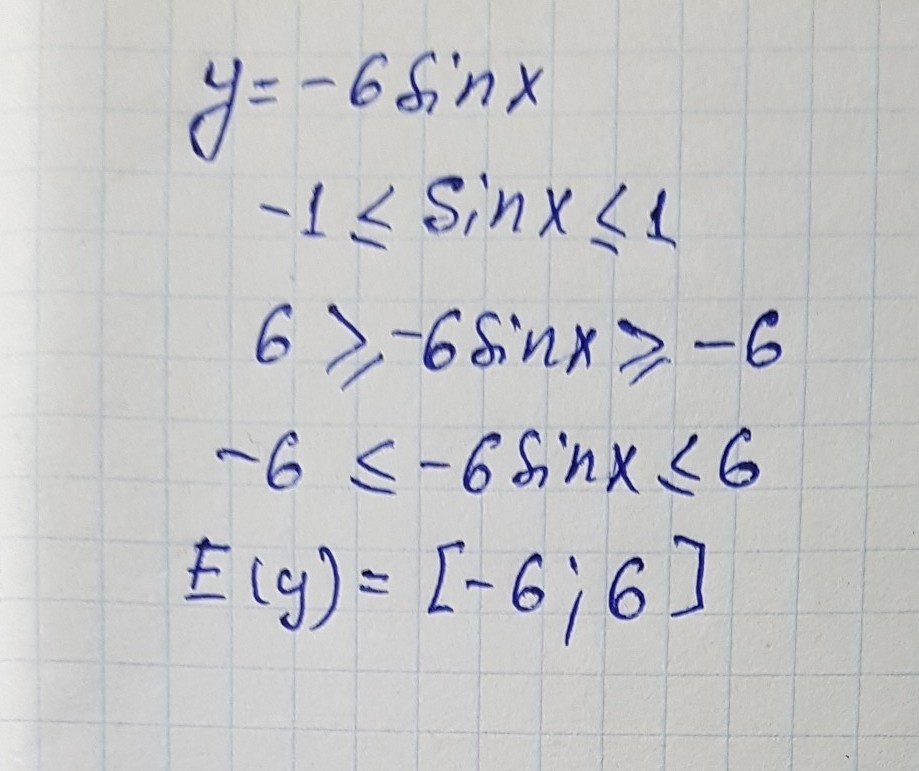 y = -6 sin x
-1 ≤ sin x ≤ 1
6 ⩾ -6 sin x ⩾ -6
-6 ≤ -6 sin x ≤ 6
E(y) = [-6; 6]